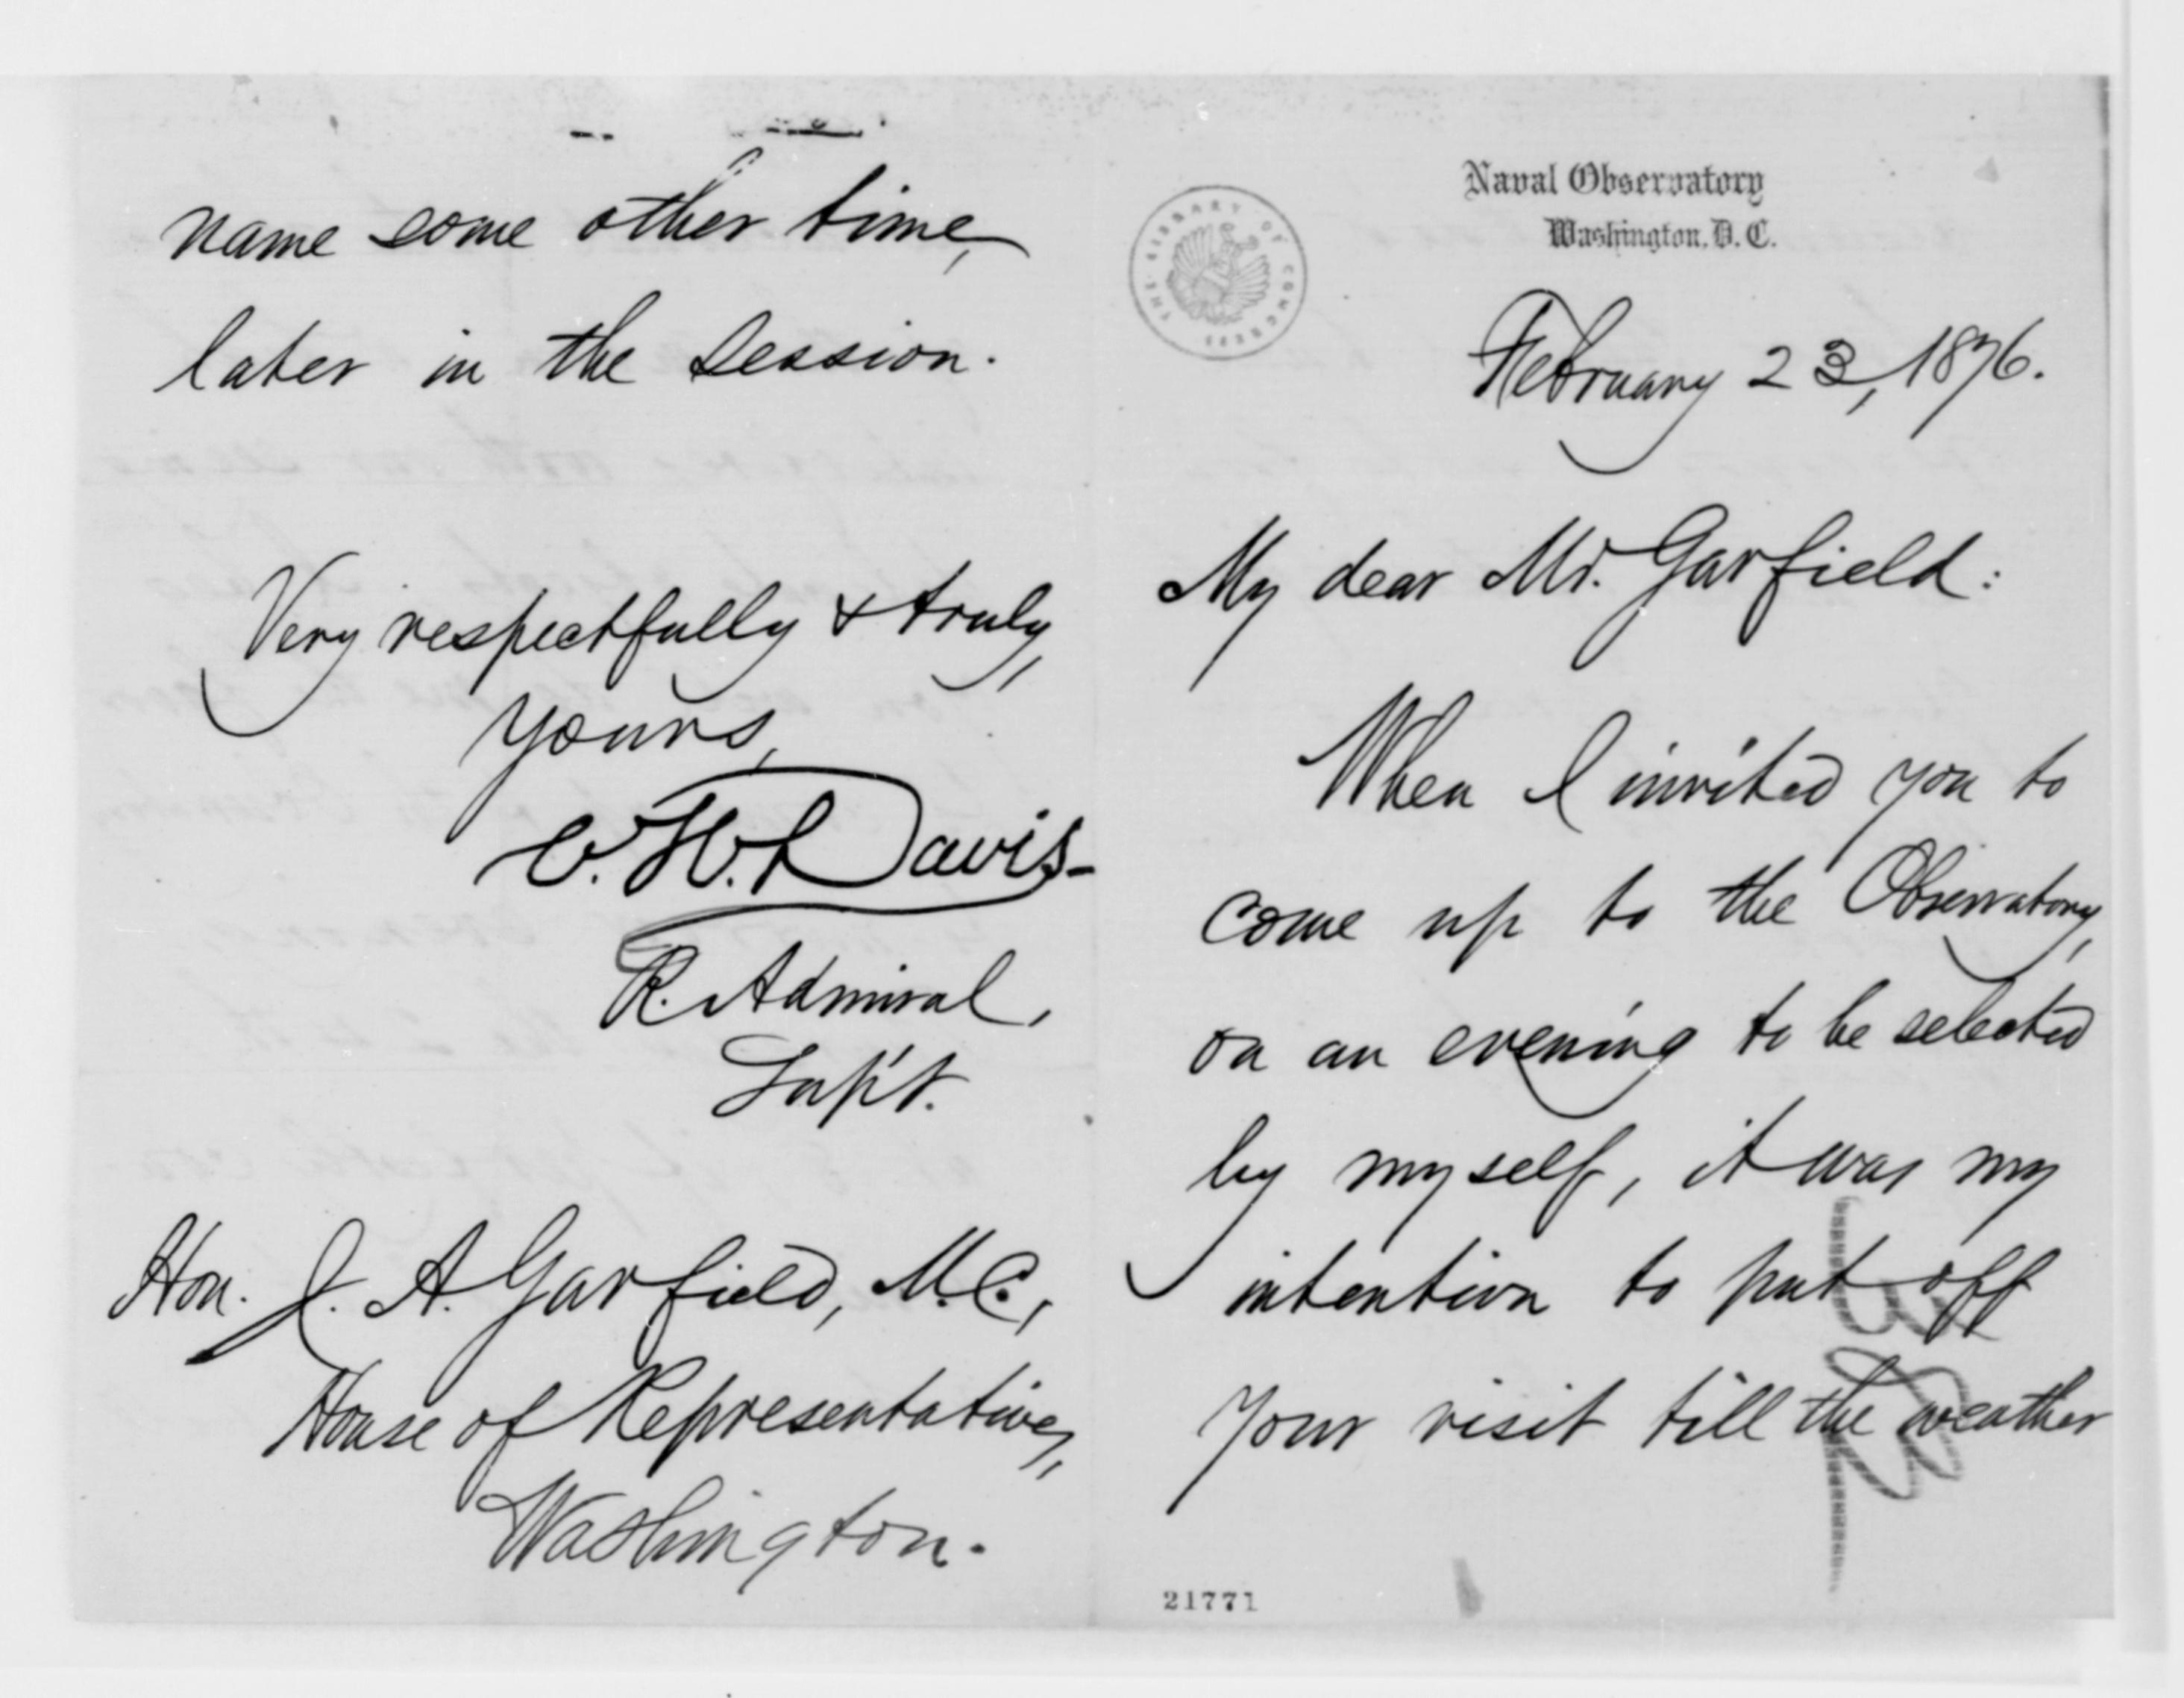 Naval Observatory
Washington, D. C.
THE LIBRARY OF CONGRESS
February 23, 1876.
My dear Mr. Garfield:
When I invited you to
come up to the Observatory,
on an evening to be selected
by myself, it was my
intention to put off
your visit till the weather
21771
name some other time,
later in the session.
Very respectfully & truly,
yours,
C. H. Davis-
R. Admiral,
Sup't.
Hon. J. A. Garfield, M.C.,
House of Representatives,
Washington.